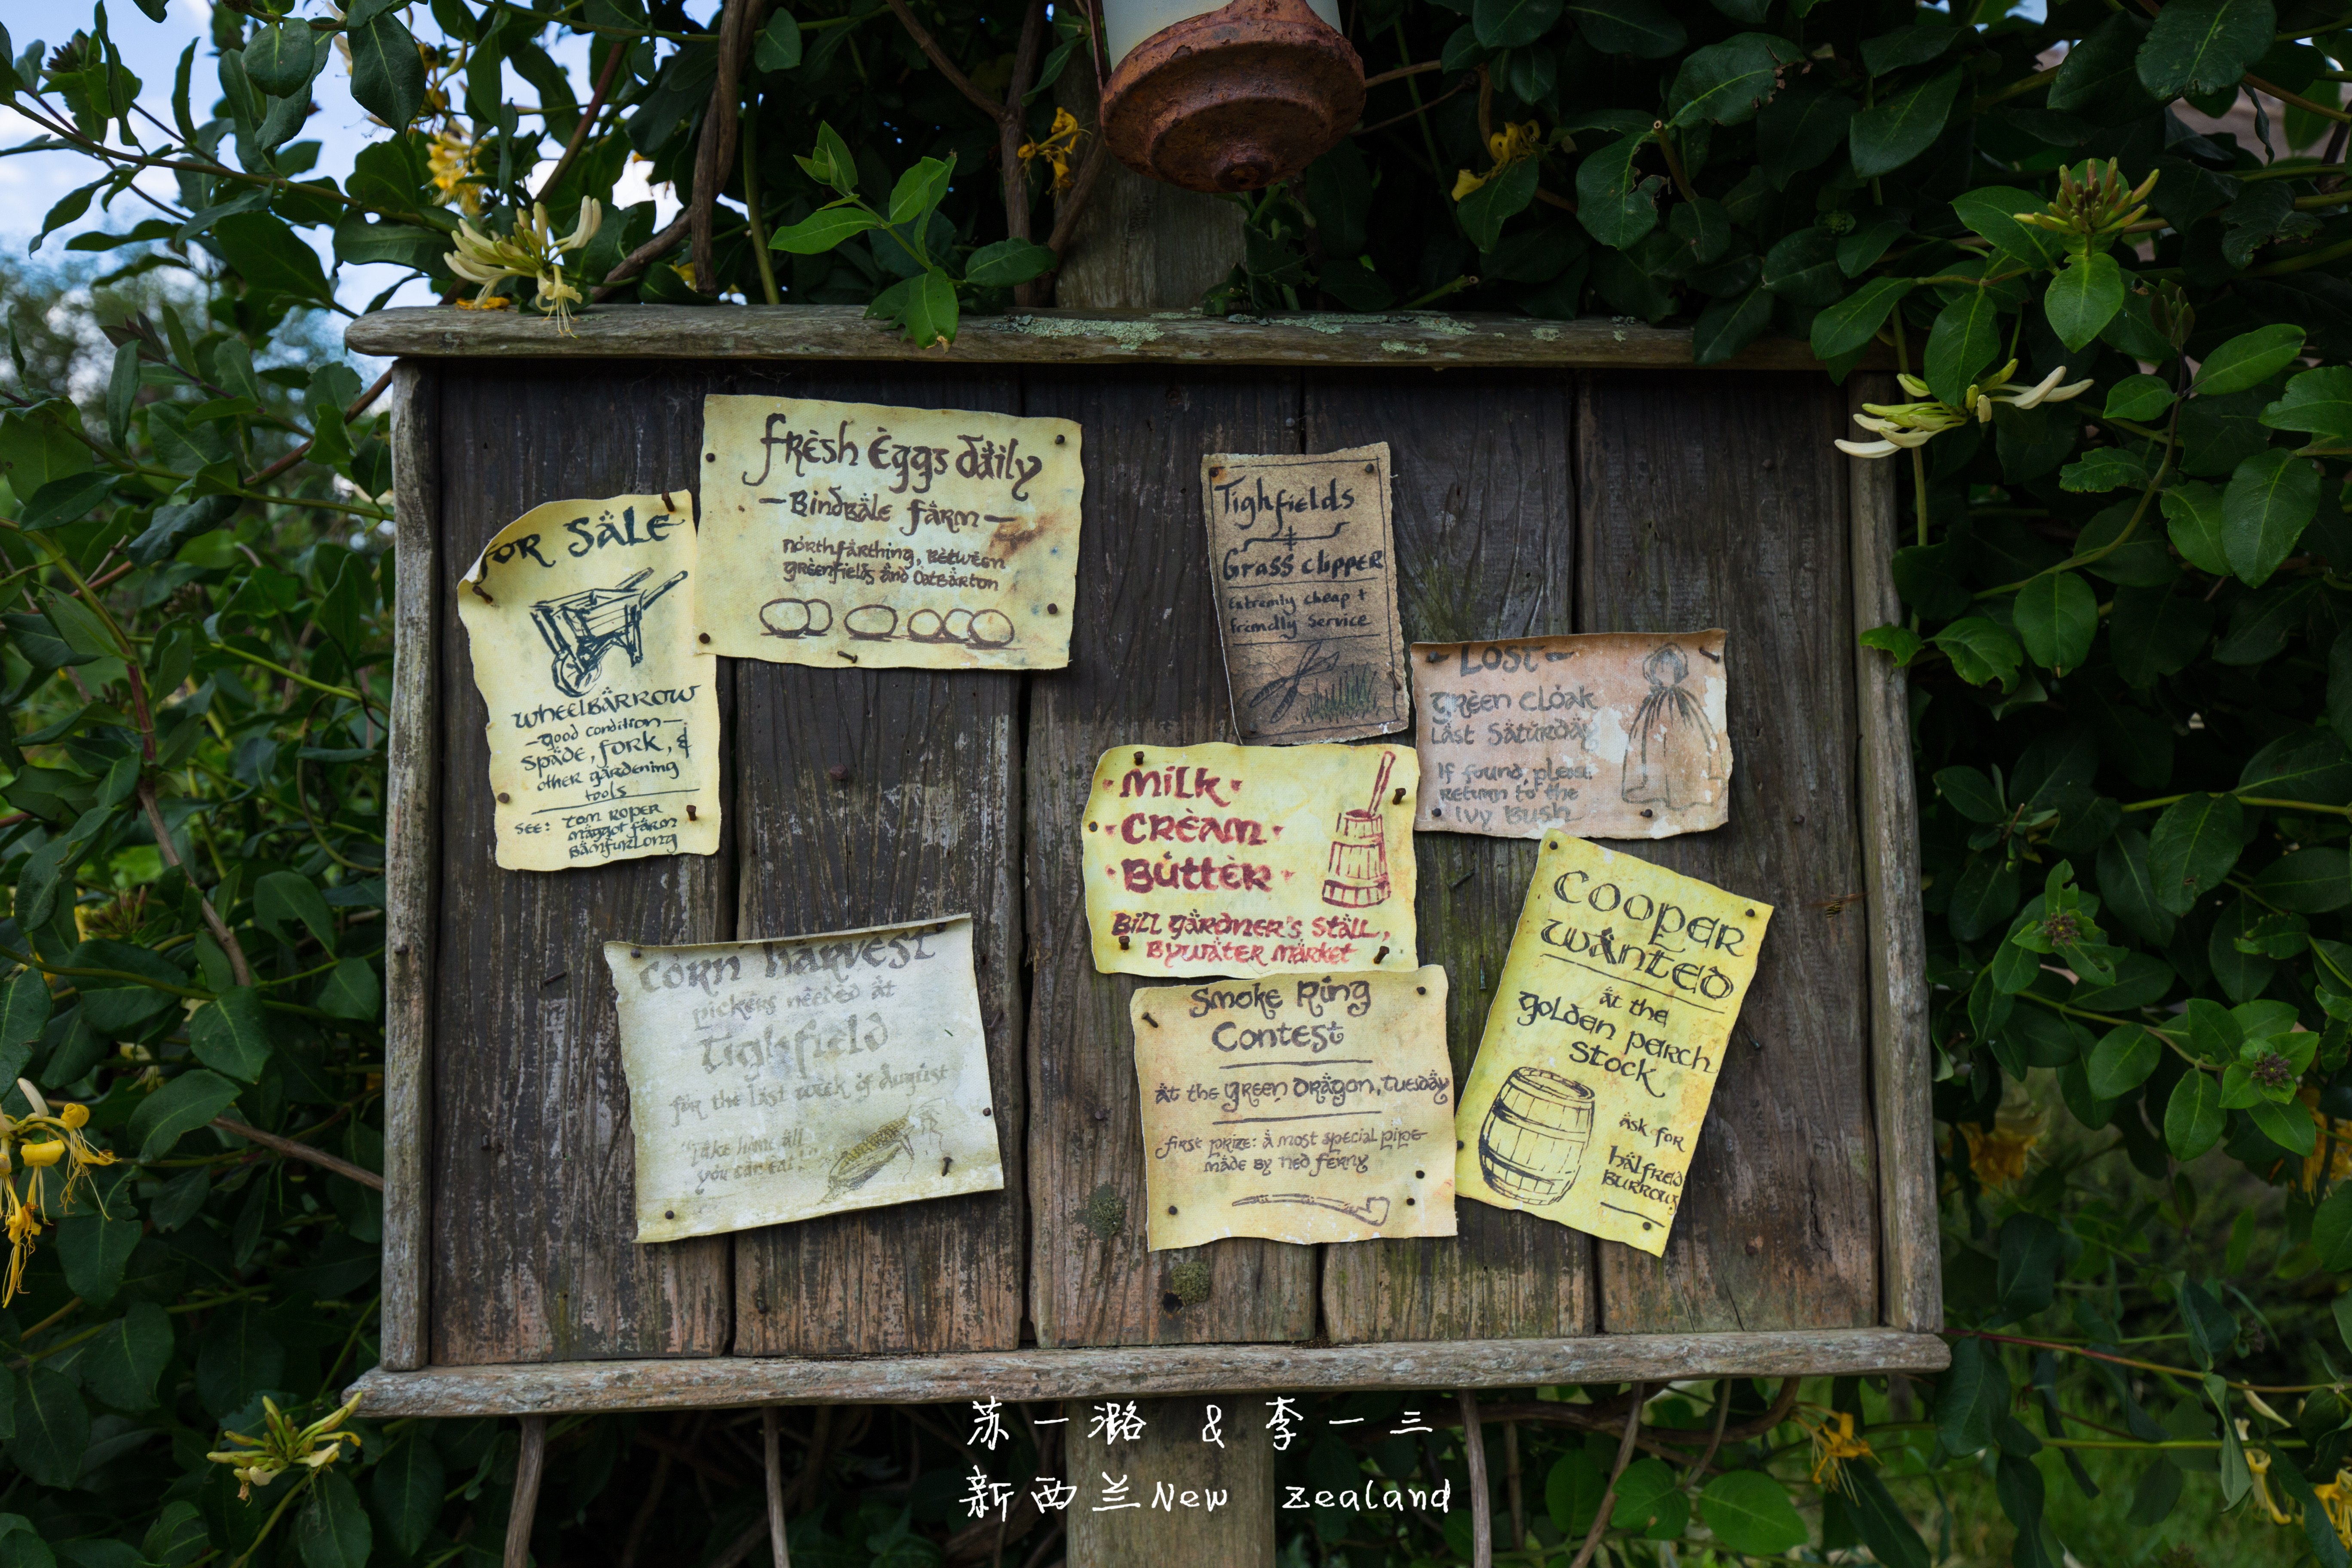 FOR SALE
WHEELBARROW
-Good condition-
SPADE, FORK, &
other gardening
tools
SEE: TOM ROPER
MAGGOT FARM
BAMFURLONG
FRESH EGGS DAILY
-BINDBALE FARM-
NORTHFARTHING, BETWEEN
GREENFIELDS AND OATBARTON
Tighfields
Grass clipper
Extremly cheap +
friendly Service
LOST-
GREEN CLOAK
LAST SATURDAY
If found, please
return to the
IVY BUSH
·MILK·
·CREAM·
·BUTTER·
BILL GARDNER'S STALL,
BYWATER MARKET
CORN HARVEST
pickers needed at
Tighfield
for the last week of August
"Take home all
you can eat!"
Smoke Ring
Contest
at the GREEN DRAGON, TUESDAY
first prize: a most special pipe
made by TED FERNY
COOPER
WANTED
at the
golden perch
Stock
ASK FOR
HALFRED
BURROWS
苏一潞 & 李一三
新西兰New Zealand